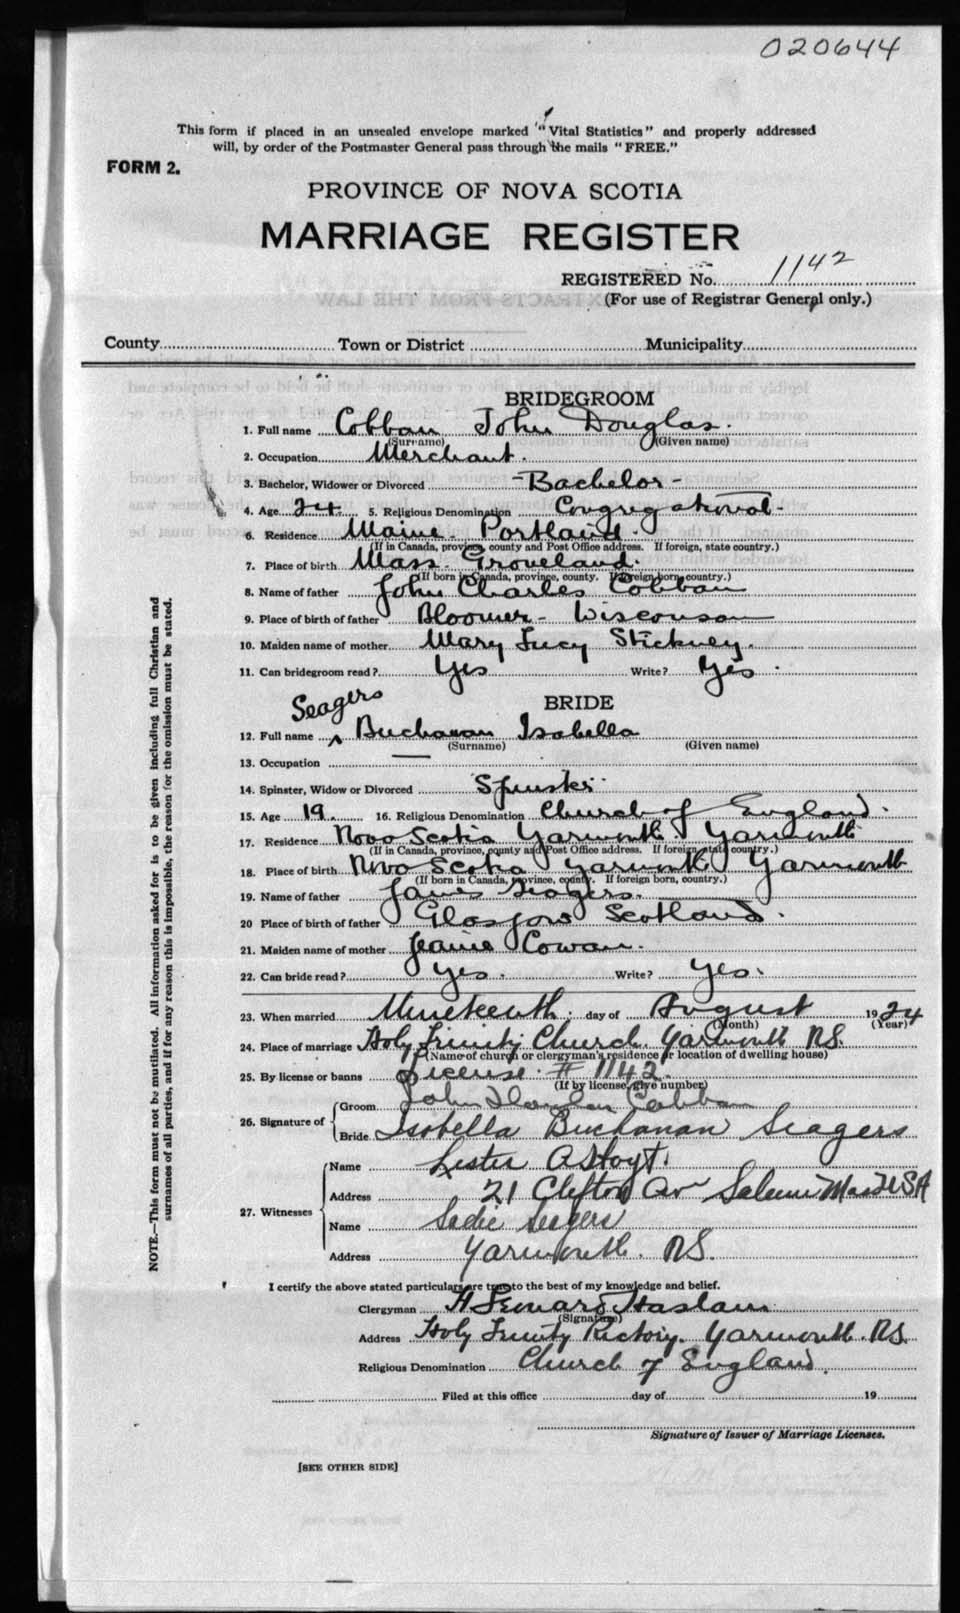 020644
This form if placed in an unsealed envelope marked "Vital Statistics" and properly addressed
will, by order of the Postmaster General pass through the mails "FREE."
FORM 2.
PROVINCE OF NOVA SCOTIA
MARRIAGE REGISTER
REGISTERED No. 1142
(For use of Registrar General only.)
County Town or District Municipality
BRIDEGROOM
1. Full name Cobban John Douglas.
(Surname) (Given name)
2. Occupation Merchant.
3. Bachelor, Widower or Divorced - Bachelor -
4. Age 24. 5. Religious Denomination Congregational -
6. Residence Maine Portland.
(If in Canada, province, county and Post Office address. If foreign, state country.)
7. Place of birth Mass. Groveland.
(If born in Canada, province, county. If foreign born, country.)
8. Name of father John Charles Cobban
9. Place of birth of father Bloomer - Wisconson
10. Maiden name of mother Mary Lucy Stickney.
11. Can bridegroom read? Yes Write? Yes.
BRIDE
Seagers
12. Full name ^ Buchanan Isabella
(Surname) (Given name)
13. Occupation —
14. Spinster, Widow or Divorced Spinster
15. Age 19. 16. Religious Denomination Church of England.
17. Residence Nova Scotia Yarmouth Yarmouth
(If in Canada, province, county and Post Office address. If foreign, state country.)
18. Place of birth Nova Scotia Yarmouth Yarmouth
(If born in Canada, province, county. If foreign born, country.)
19. Name of father James Seagers.
20 Place of birth of father Glasgow Scotland.
21. Maiden name of mother Jeanie Cowan.
22. Can bride read? Yes. Write? Yes.
23. When married Nineteenth. day of August 1924
(Month) (Year)
24. Place of marriage Holy Trinity Church. Yarmouth N.S.
(Name of church or clergyman's residence or location of dwelling house)
25. By license or banns License. # 1142.
(If by license, give number)
26. Signature of Groom John Douglas Cobban
Bride Isabella Buchanan Seagers
27. Witnesses Name Lester A Hoyt.
Address 21 Clifton Av Salem Mass USA
Name Sadie Seagers
Address Yarmouth. N.S.
I certify the above stated particulars are true to the best of my knowledge and belief.
Clergyman H Leonard Haslam
(Signature)
Address Holy Trinity Rectory. Yarmouth. N.S.
Religious Denomination Church of England.
Filed at this office day of 19
Signature of Issuer of Marriage Licenses.
[SEE OTHER SIDE]
NOTE.—This form must not be mutilated. All information asked for is to be given including full Christian and
surnames of all parties, and if for any reason this is impossible, the reason for the omission must be stated.